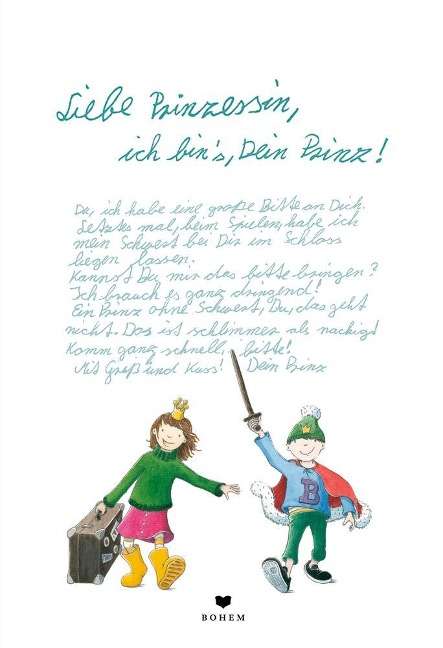 Liebe Prinzessin,
ich bin's, Dein Prinz!
Du, ich habe eine große Bitte an Dich.
Letztes mal, beim Spielen, habe ich
mein Schwert bei Dir im Schloss
liegen lassen.
Kannst Du mir das bitte bringen?
Ich brauch es ganz dringend!
Ein Prinz ohne Schwert, Du, das geht
nicht. Das ist schlimmer als nackig!
Komm ganz schnell, bitte!
Mit Gruß und Kuss! Dein Prinz
B
BOHEM